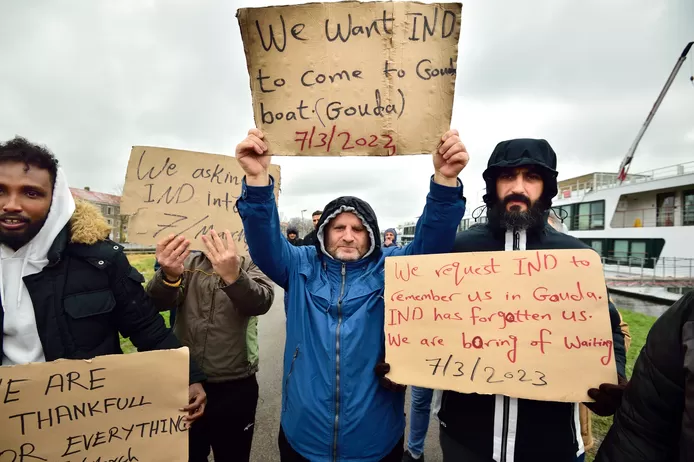 We Want IND
to come to Gouda
boat. (Gouda)
7/3/2023
We asking
IND inter
7/March
We request IND to
remember us in Gouda.
IND has forgotten us.
We are boring of Waiting
7/3/2023
WE ARE
THANKFULL
FOR EVERYTHING
March